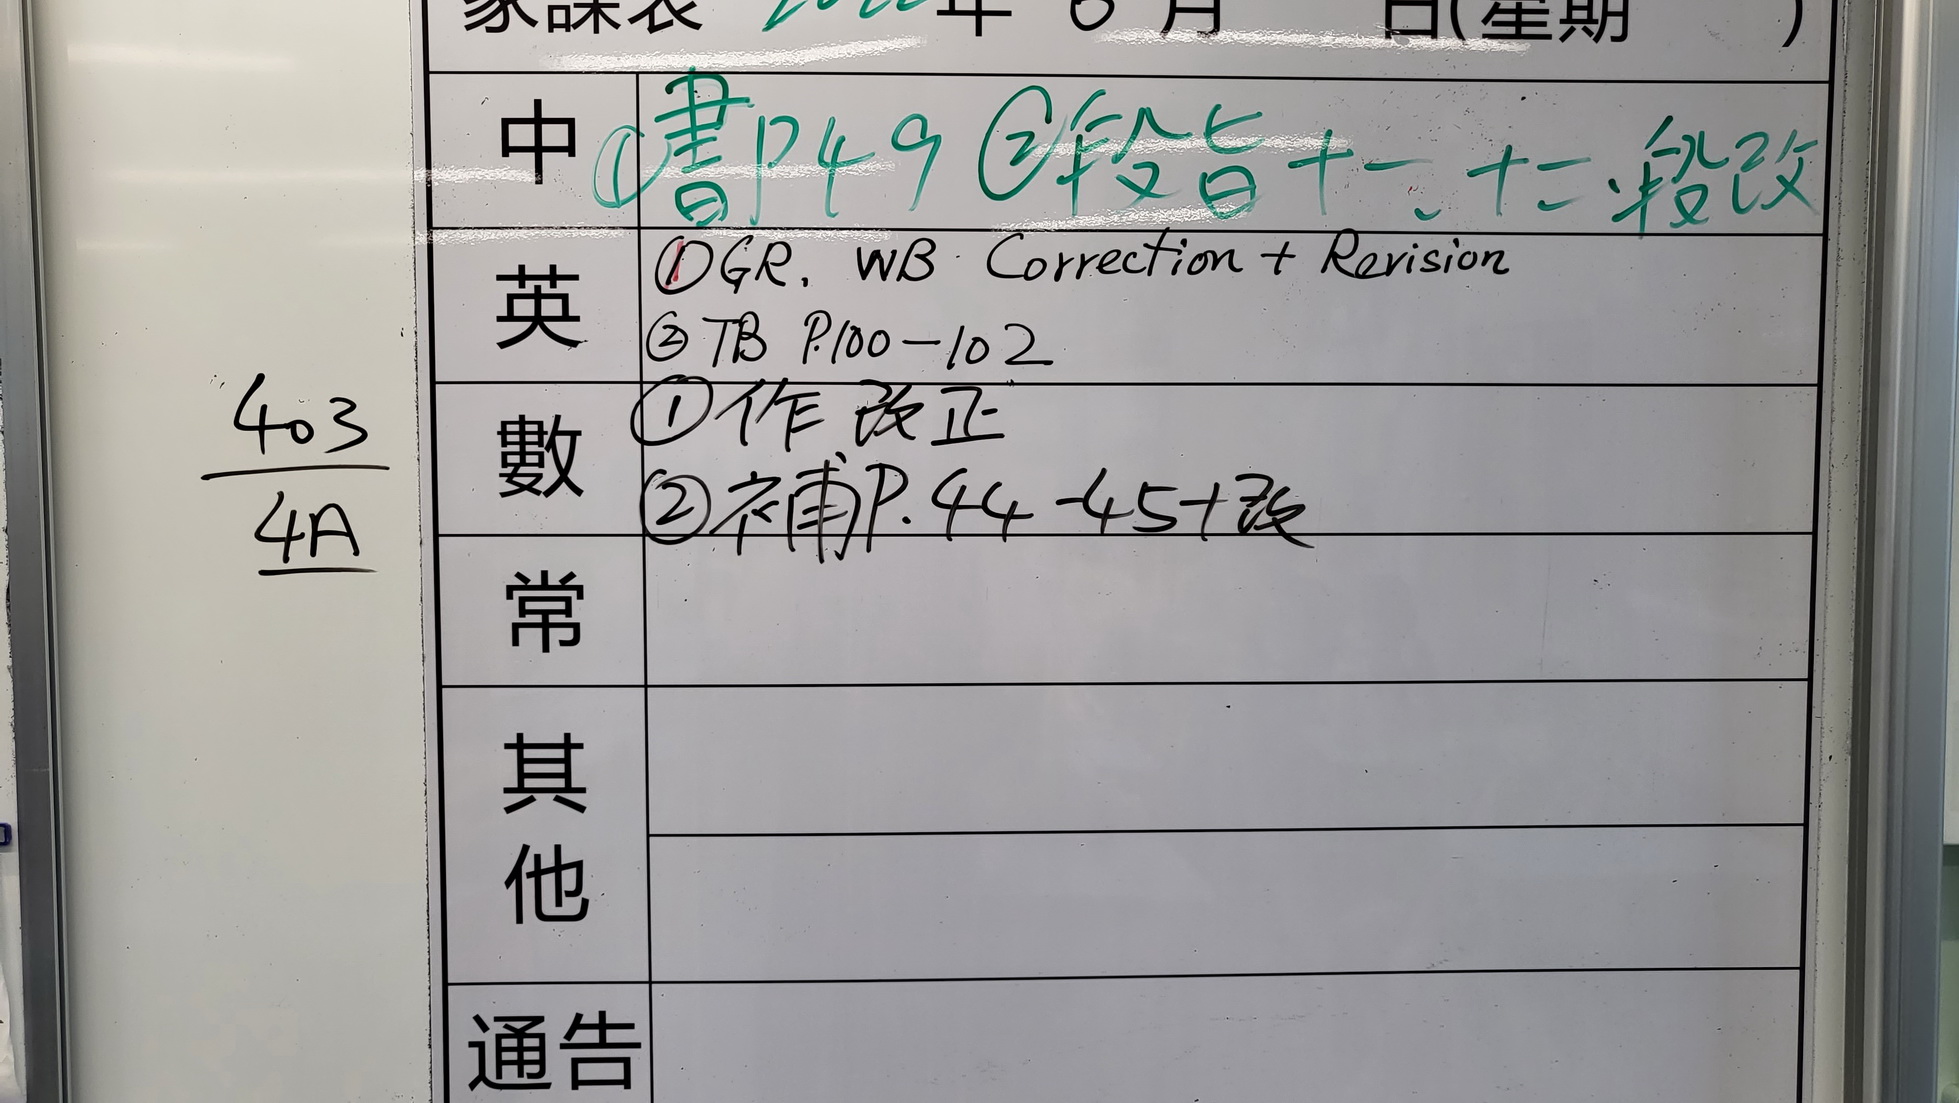 家課表 年 6 月 日(星期 )
中 ①書P49 ②段旨十一、十二段改
英 ①GR. WB Correction + Revision
②TB P.100-102
數 ①作改正
②補P.44-45+改
常
其他
通告
403
4A